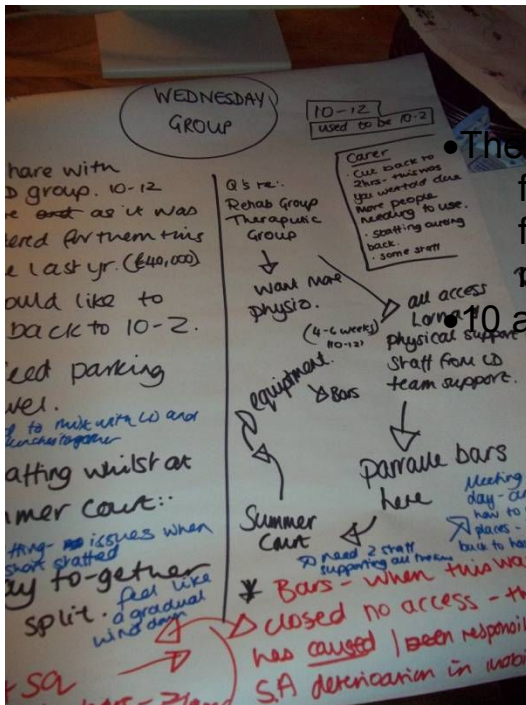 WEDNESDAY
GROUP
10-12
used to be 10-2
Carer
· Cut back to
2hrs - this was
you were told due
More people
needing to use.
back.
· some staff
hare with
D group. 10-12
as it was
ered for them this
e last yr. (£40,000)
ould like to
back to 10-2.
eed parking
to mix with LD and
affing whilst at
mer Court:-
issues when
short staffed
ay to-gether
split.
feel like
a gradual
wind down
Q's re:-
Rehab Group
Therapeutic
Group
want more
physio.
(4-6 weeks)
(10-12)
equipment.
Bars
all access
physical support
Staff from LD
team support.
Parralle bars
here
Summer
Court
need 2 staff
supporting all the time
Meeting
day -
how to
places -
back to
* Bars - when this wa
closed no access - th
has caused / been responsib
S.A deterioation in mobi
SA
• The
f
f
• 10 a